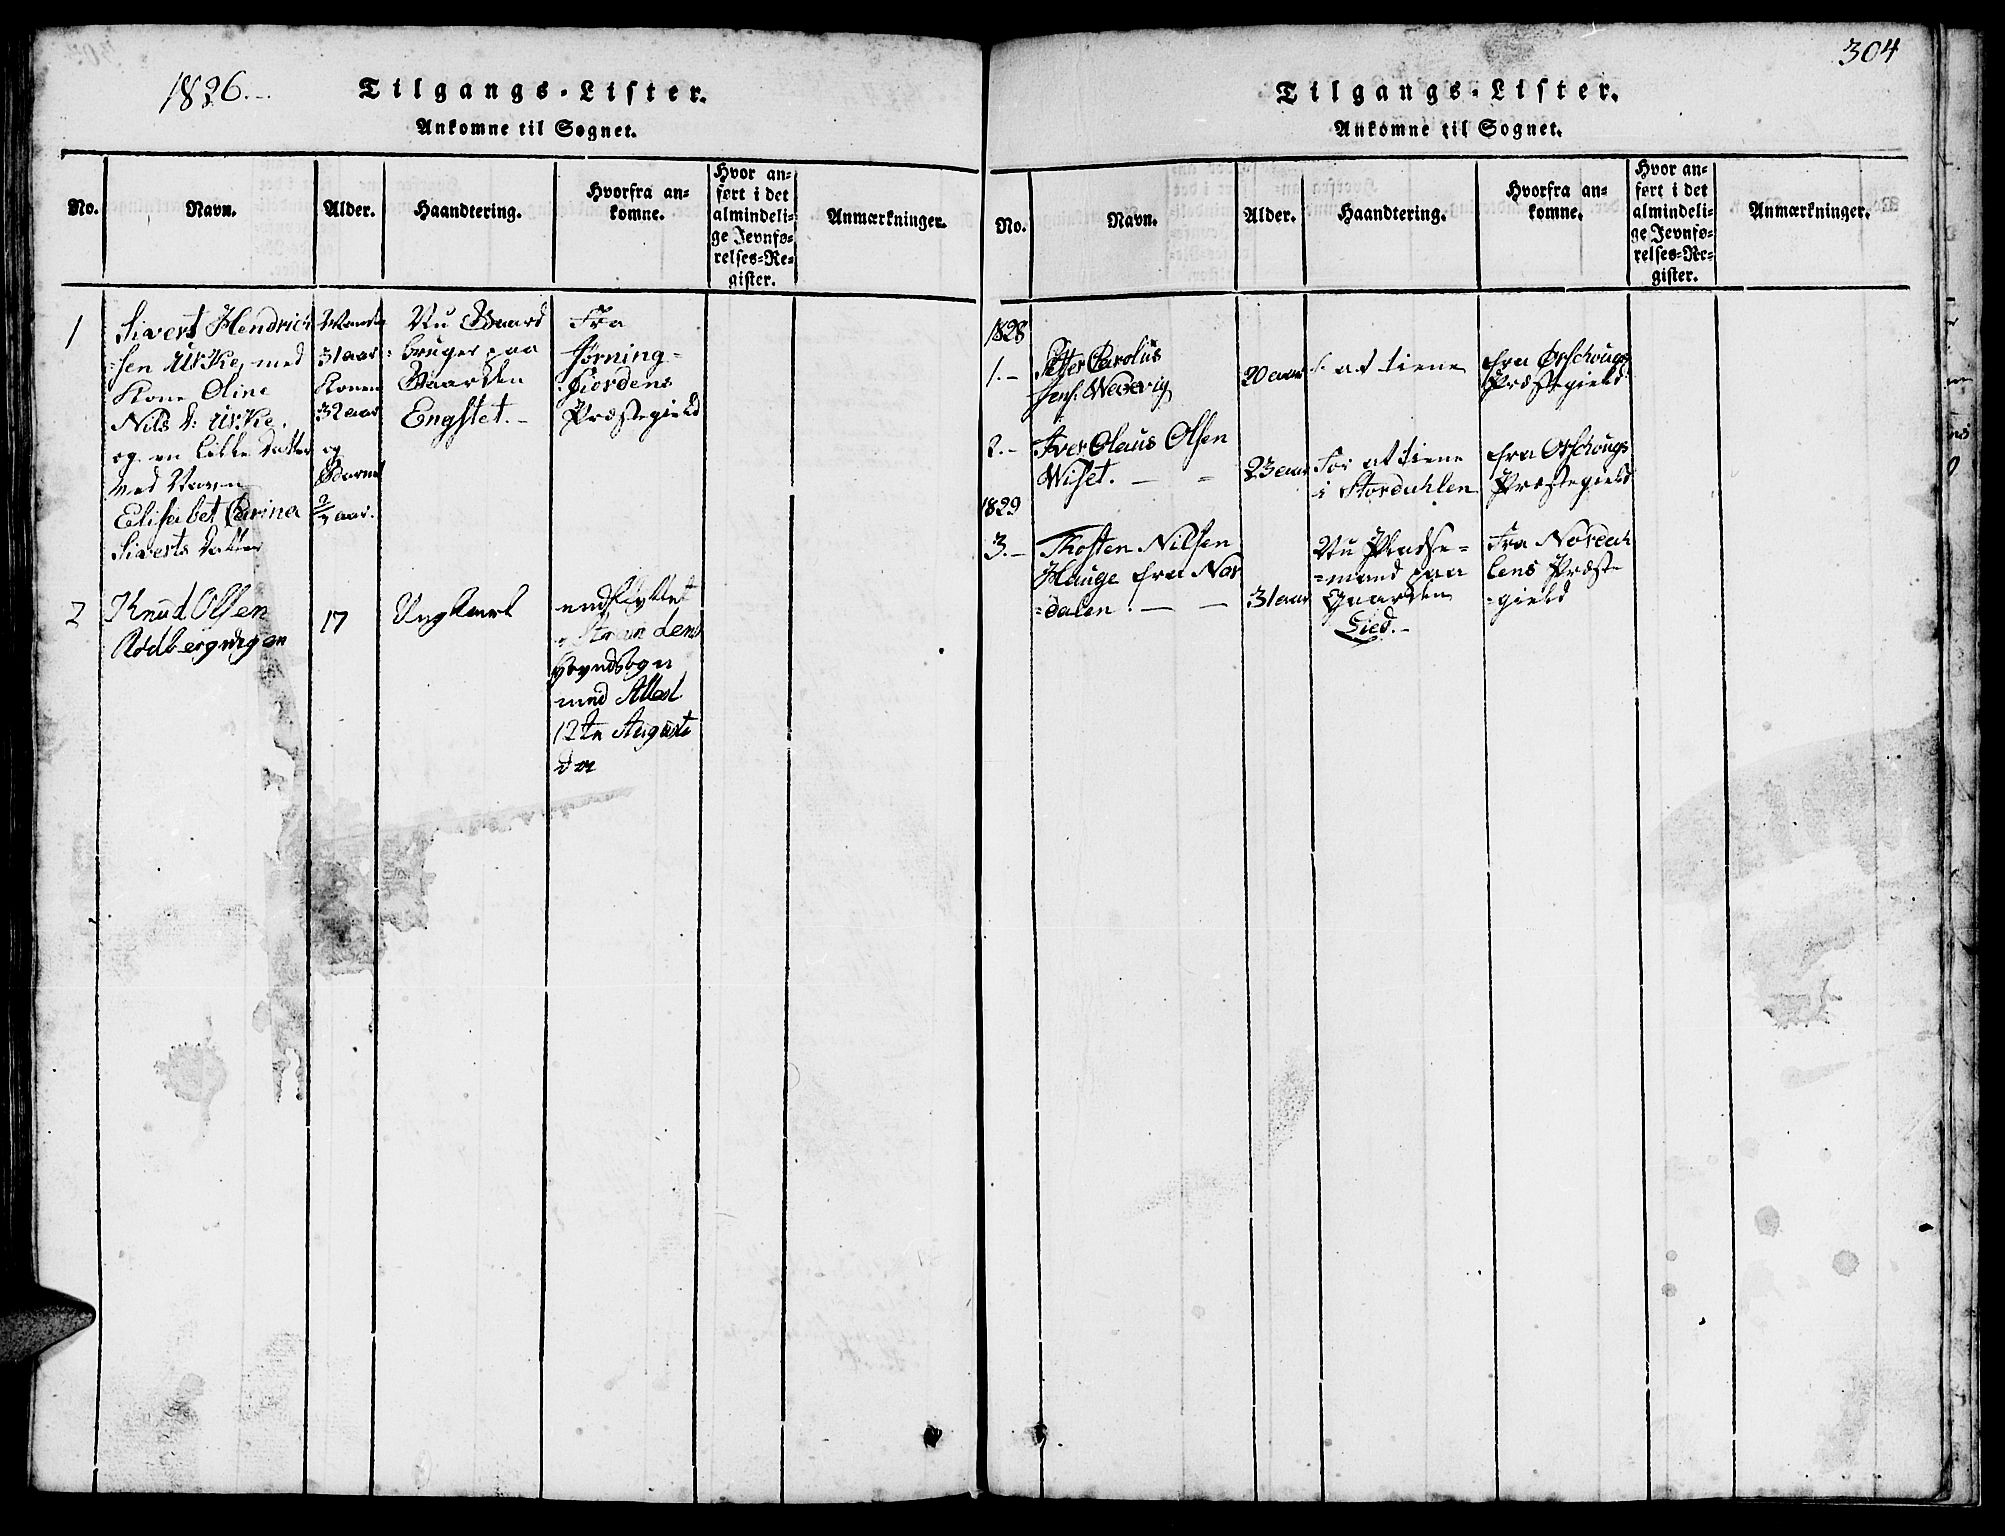 1826.-
Tilgangs-Lister.
Ankomne til Sognet.
No.
Navn.
Alder.
Haandtering.
Hvorfra an-
komne.
Hvor an-
ført i det
almindeli-
ge Jevnfø-
relses-Re-
gister.
Anmærkninger.
1
Sivert Hendrich
=sen Urke, med
Kone Oline
Nils d: Urke.
og en lille datter
ved Navn
Elisabet Carina
Siverts datter
31 aar
Konen
32 aar
og
Barnet
aar.
Nu Gaard
=bruger paa
Gaarden
Engstet.-
Fra
Jørning-
fiordens
Præstegield
2
Knud Olsen
Rødbergvigen
17
Ungkarl
indflyttet
med Attest
12te Augusti
304
Tilgangs-Lister.
Ankomne til Sognet.
No.
Navn.
Alder.
Haandtering.
Hvorfra an-
komne.
Hvor an-
ført i det
almindeli-
ge Jevnfø-
relses-Re-
gister.
Anmærkninger.
1828
1.-
Petter Carolus
20 aar
at tiene
fra Ørschougs
Præstegield
2.-
Iver Olaus Olsen
Wiset. -
23 aar
For at tiene
i Stordahlen
fra Ørschougs
Præstegield
1829
3.-
Thosten Nilsen
Hauge fra Nor
=dalen. - -
31 aar
Nu Pladse=
=mand paa
Gaarden
Lied.-
Fra Nordah
lens Præste
=gield